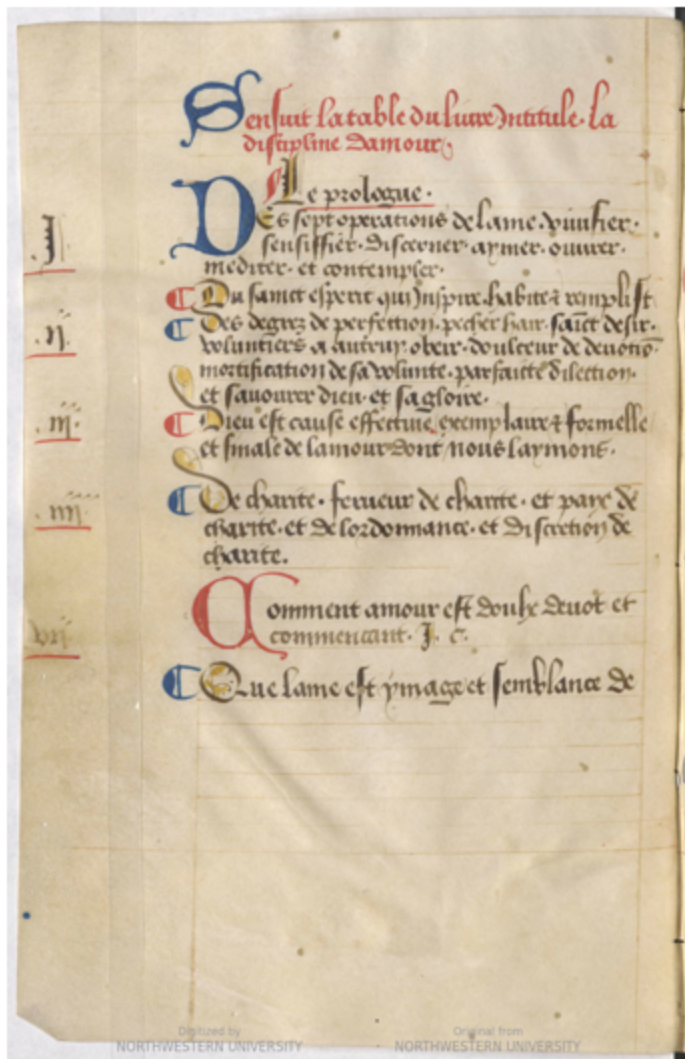 Sensuit la table du liure Intitule. la
discipline damour
Le prologue.
Des sept operations de lame. viuifier.
sensiffier. discerner. aymer. ouurer.
mediter. et contempler.
Du sainct esperit qui Inspire. habite ⁊ remplist
Des degrez de perfection. pecher hair. sainct desir.
voluntiers a autruy obeir. doulceur de deuotiō.
mortification de sa volunte. parfaicte dilection.
et sauourer dieu. et sa gloire.
Dieu est cause effectiue, exemplaire ⁊ formelle
et finale de lamour dont nous laymons.
De charite. ferueur de charite. et paix de
charite. et de lordonnance. et discretion de
charite.
Comment amour est double deuot et
commencant. J. c.
Que lame est ymage et semblance de
J
.ij.
.iij.
.iiij.
Digitized by
NORTHWESTERN UNIVERSITY
Original from
NORTHWESTERN UNIVERSITY